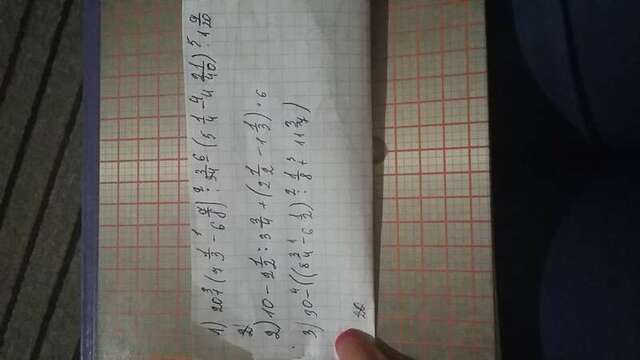 1) 20 + (7 1/3 - 6 7/8) : 3/54 - (5 1/4 - 4 21/40) : 1 9/20
2) 10 - 2 1/2 : 3 3/4 + (2 1/2 - 1 1/3) · 6
3) 30 - ((8 3/4 - 6 1/2) : 1/8 + 11 3/4)